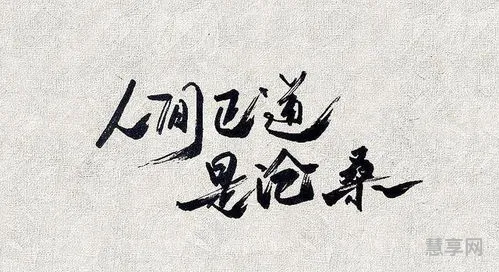 人间正道
是沧桑
慧享网